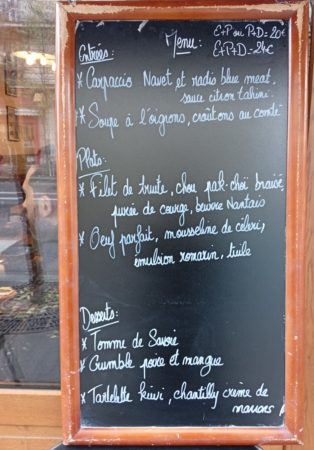 E+P ou P+D = 20€
Menu:
E+P+D = 24€
Entrées:
* Carpaccio Navet et radis blue meat,
sauce citron tahini
* Soupe à l'oignons, croûtons au comté
Plats:
* Filet de truite, chou pak-choï braisé,
purée de courge, beurre Nantais
* Oeuf parfait, mousseline de céleri,
émulsion romarin, tuile
Desserts:
* Tomme de Savoie
* Crumble poire et mangue
* Tartelette kiwi, chantilly crème de
marrons